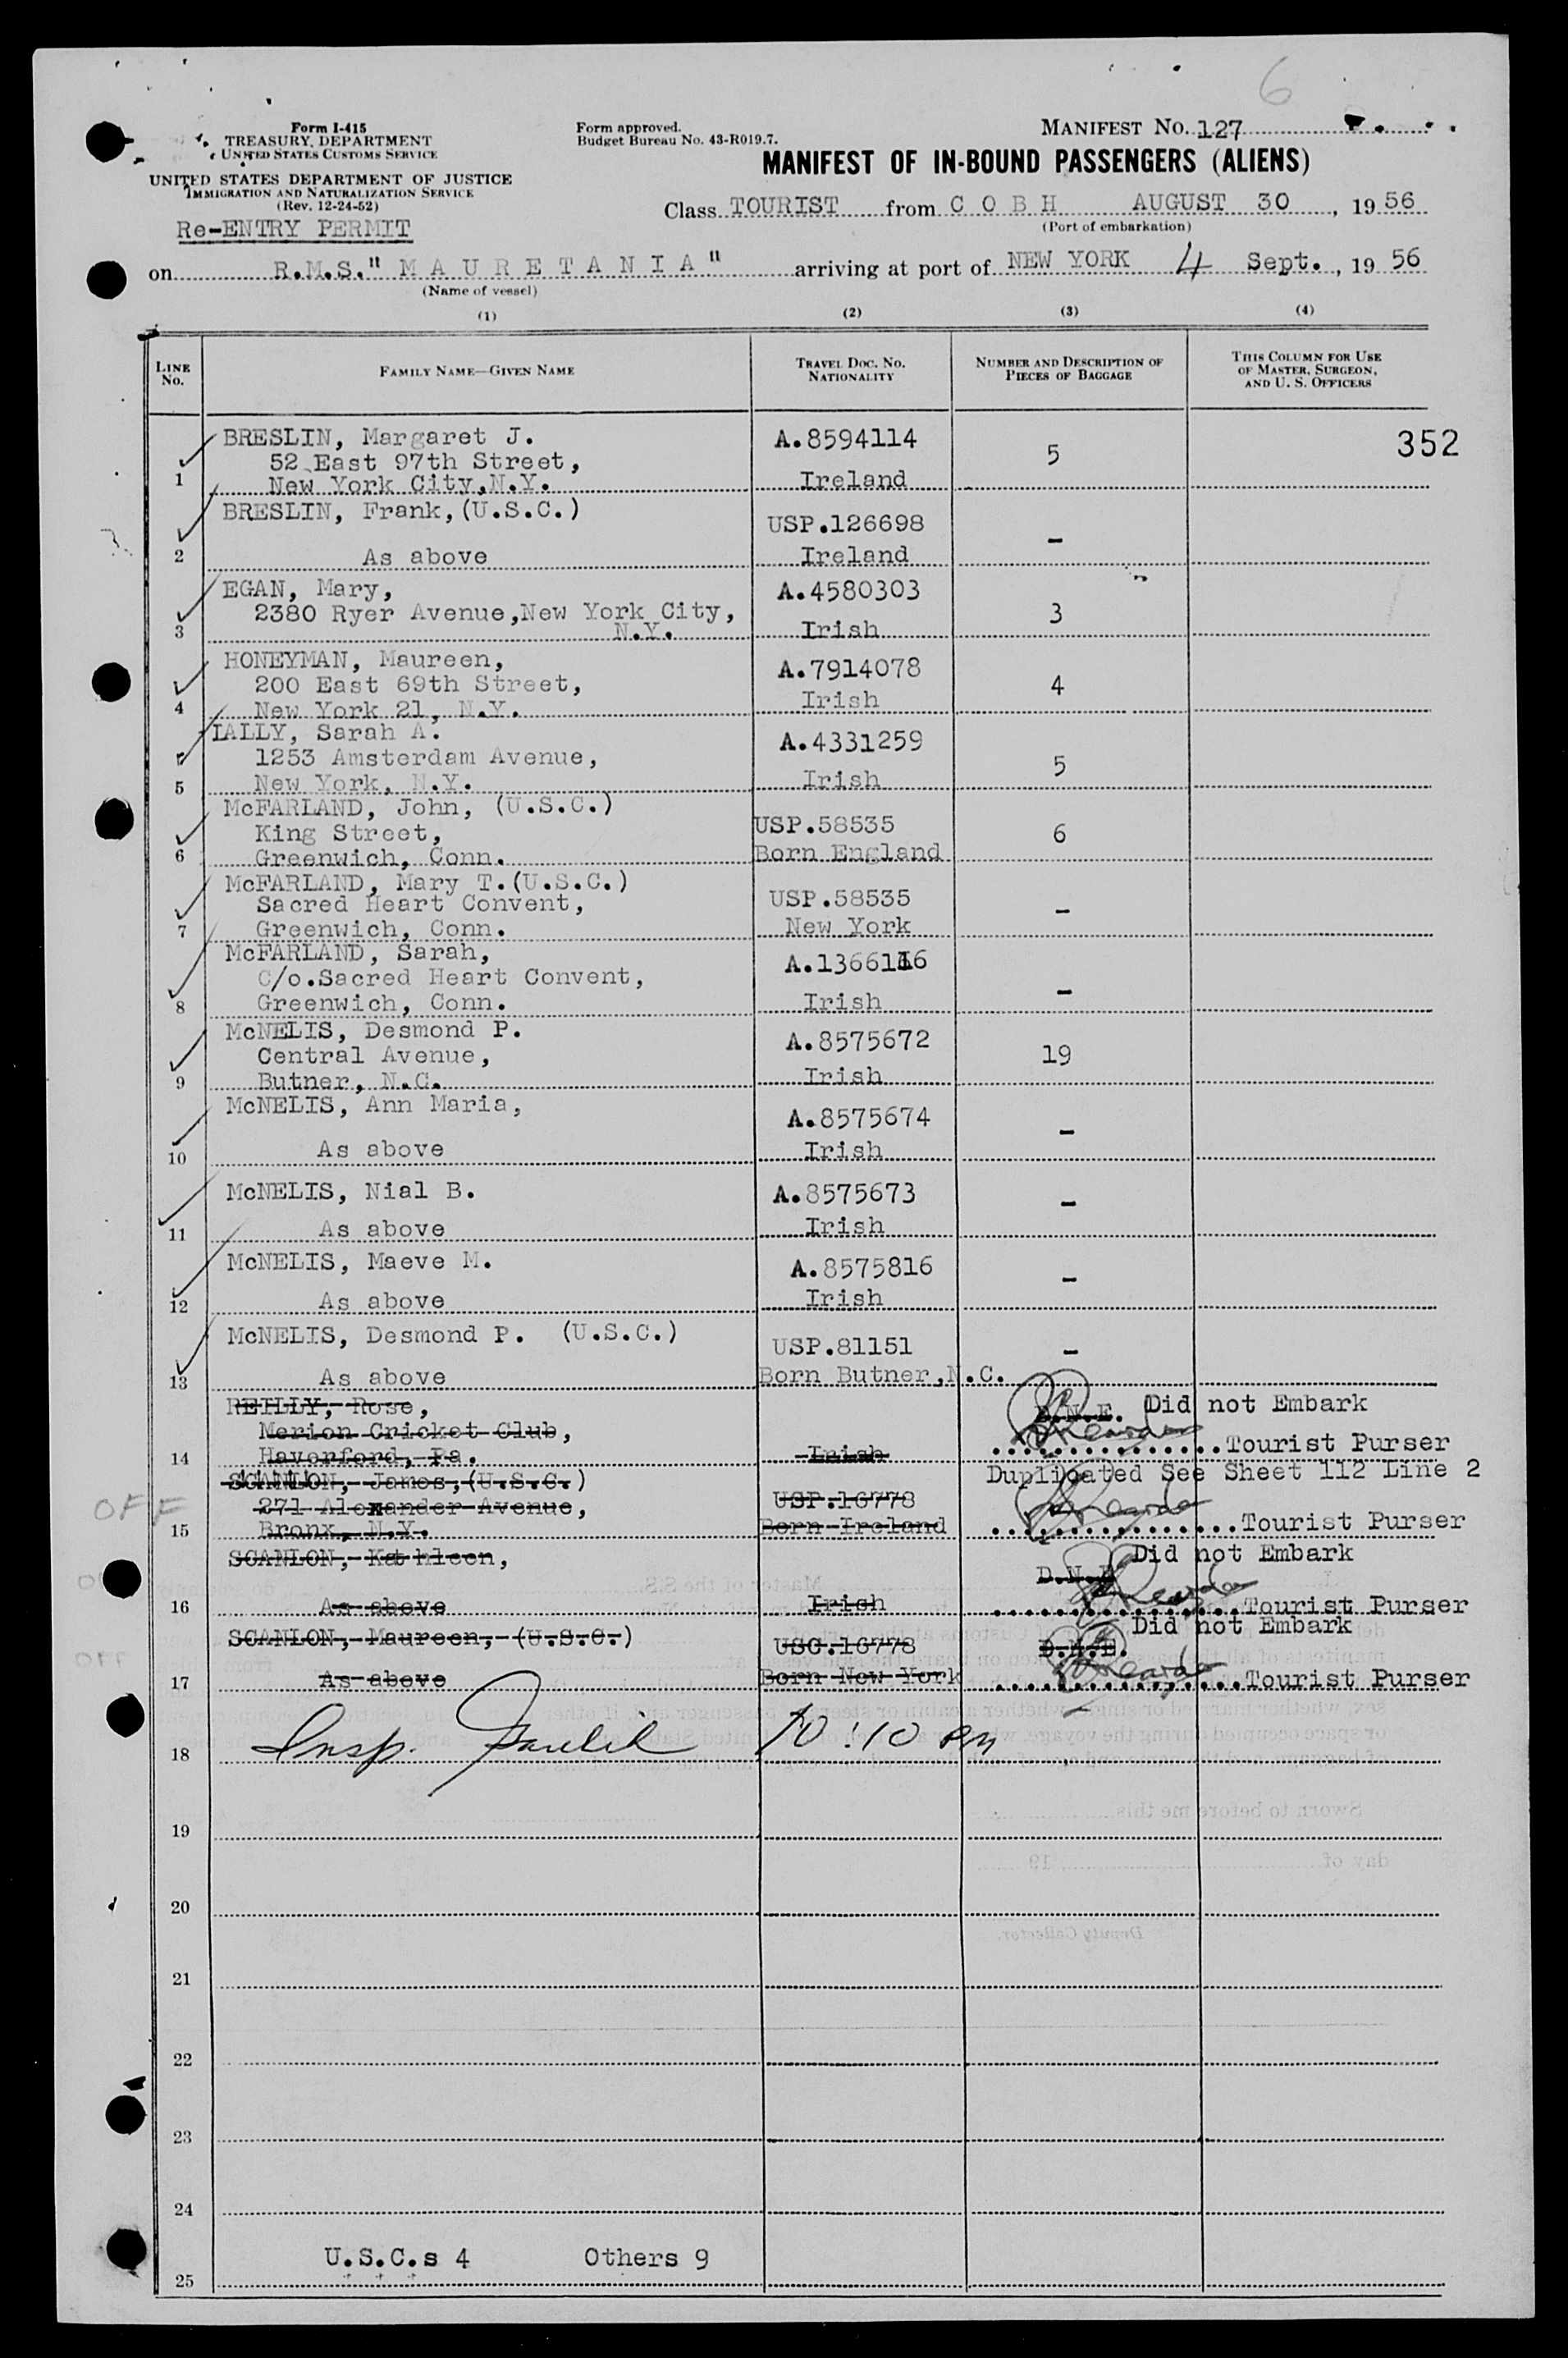 6
Form I-415
TREASURY DEPARTMENT
UNITED STATES CUSTOMS SERVICE
UNITED STATES DEPARTMENT OF JUSTICE
IMMIGRATION AND NATURALIZATION SERVICE
(Rev. 12-24-52)
Re-ENTRY PERMIT
Form approved.
Budget Bureau No. 43-R019.7.
MANIFEST NO. 127
MANIFEST OF IN-BOUND PASSENGERS (ALIENS)
Class TOURIST from C O B H AUGUST 30, 1956
(Port of embarkation)
on R.M.S." M A U R E T A N I A" arriving at port of NEW YORK 4 Sept., 1956
(Name of vessel)
(1) (2) (3) (4)
LINE NO.
FAMILY NAME—GIVEN NAME
TRAVEL DOC. NO. NATIONALITY
NUMBER AND DESCRIPTION OF PIECES OF BAGGAGE
THIS COLUMN FOR USE OF MASTER, SURGEON, AND U. S. OFFICERS
BRESLIN, Margaret J. A.8594114 352
52 East 97th Street, 5
1 New York City, N.Y. Ireland
BRESLIN, Frank, (U.S.C.) USP.126698 -
2 As above Ireland
EGAN, Mary, A.4580303
2380 Ryer Avenue, New York City, 3
3 N.Y. Irish
HONEYMAN, Maureen, A.7914078
200 East 69th Street, 4
4 New York 21, N.Y. Irish
LALLY, Sarah A. A.4331259
1253 Amsterdam Avenue, 5
5 New York, N.Y. Irish
McFARLAND, John, (U.S.C.)
King Street, USP.58535 6
6 Greenwich, Conn. Born England
McFARLAND, Mary T.(U.S.C.)
Sacred Heart Convent, USP.58535 -
7 Greenwich, Conn. New York
McFARLAND, Sarah,
C/o.Sacred Heart Convent, -
8 Greenwich, Conn. Irish
McNELIS, Desmond P. A.8575672
Central Avenue, 19
9 Butner, N.C. Irish
McNELIS, Ann Maria, A.8575674 -
10 As above Irish
McNELIS, Nial B. A.8575673 -
11 As above Irish
McNELIS, Maeve M. A.8575816 -
12 As above Irish
McNELIS, Desmond P. (U.S.C.) USP.81151 -
13 As above Born Butner, N.C.
REILLY, Rose, D.N.E. Did not Embark
Merion Cricket Club,
14 Haverford, Pa. Irish Tourist Purser
SCANLON, James, (U.S.C.) Duplicated See Sheet 112 Line 2
OFF 271 Alexander Avenue, USP.16778
15 Bronx, N.Y. Born Ireland Tourist Purser
SCANLON, Kathleen, D.N.E. Did not Embark
16 As above Irish Tourist Purser
SCANLON, Maureen, (U.S.C.) USC.16778 D.N.E. Did not Embark
OFF
17 As above Born New York Tourist Purser
18 Insp. 10:10 am
19
20
21
22
23
24
U.S.C.s 4 Others 9
25